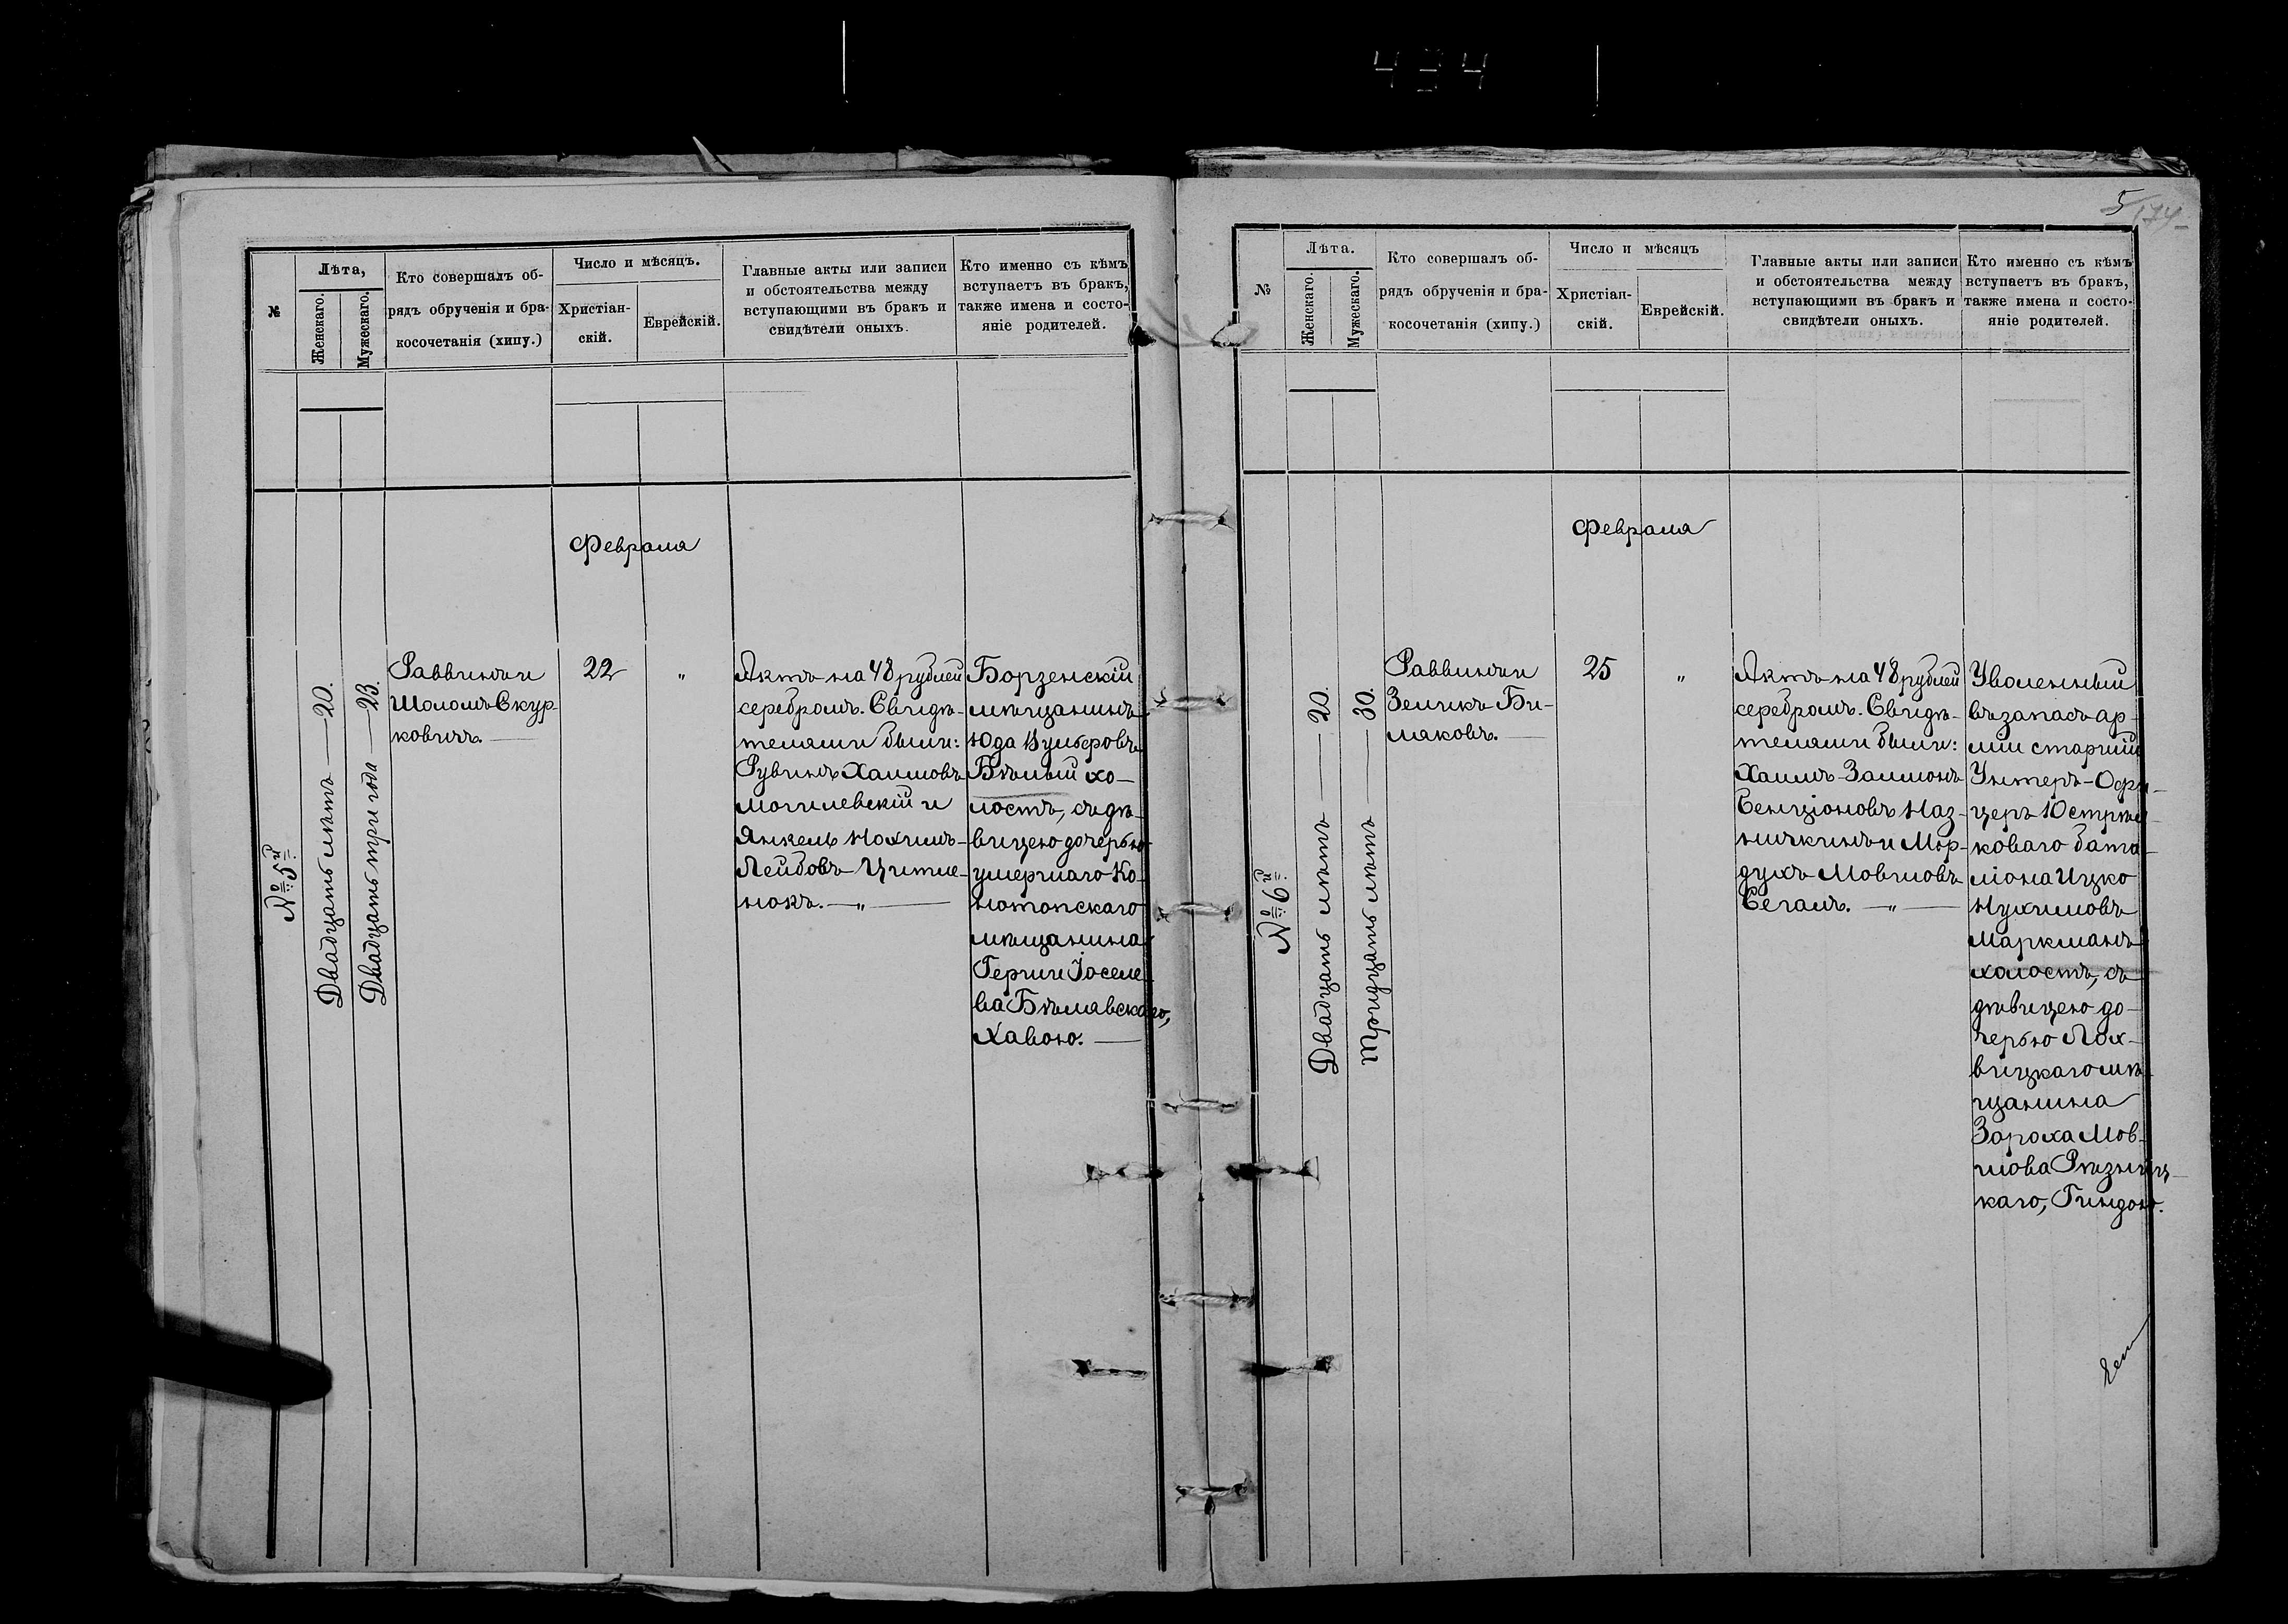 434
5
174
№
Лѣта,
Женскаго.
Мужескаго.
Кто совершалъ об-
рядъ обрученія и бра-
косочетанія (хипу.)
Число и мѣсяцъ.
Христіан-
скій.
Еврейскій.
Главные акты или записи
и обстоятельства между
вступающими въ бракъ и
свидѣтели оныхъ.
Кто именно съ кѣмъ
вступаетъ въ бракъ,
также имена и состо-
яніе родителей.
Февраля
№ 5й
Двадцать лѣтъ — 20.
Двадцать три года — 23.
Раввинъ и
Шоломъ Скур
ковичъ. —
22
"
Актъ на 48 рублей
серебромъ. Свидѣ-
телями были:
Рувинъ Хаимовъ
Могилевскій и
Янкель Нохимъ-
Лейбовъ Цитле-
нокъ. — " —
Борзенскій
мѣщанинъ
Юда Вульфовъ
Бѣлый хо-
лостъ, съ дѣ-
вицею дочерью
умершаго Ко-
нотопскаго
мѣщанина
Герши Іоселе
ва Бѣлявскаго,
Хавою. —
№
Лѣта.
Женскаго.
Мужескаго.
Кто совершалъ об-
рядъ обрученія и бра-
косочетанія (хипу.)
Число и мѣсяцъ
Христіан-
скій.
Еврейскій.
Главные акты или записи
и обстоятельства между
вступающими въ бракъ и
свидѣтели оныхъ.
Кто именно съ кѣмъ
вступаетъ въ бракъ,
также имена и состо-
яніе родителей.
Февраля
№ 6й
Двадцать лѣтъ — 20.
Тридцать лѣтъ — 30.
Раввинъ и
Зеликъ Би-
маковъ. —
25
"
Актъ на 48 рублей
серебромъ. Свидѣ-
телями были:
Хаимъ-Залмонъ
Бенціоновъ Наз-
ничкинъ и Мор-
духъ Мовшовъ
Сегалъ. — " —
Уволенный
въ запасъ ар-
міи старшій
Унтеръ-Офи-
церъ 10 стрѣл-
коваго бата-
ліона Ицко
Нухимовъ
Маркманъ
холостъ, съ
дѣвицею до-
черью Лох-
вицкаго мѣ-
щанина
Зораха Мов-
шова Рѣзниц-
каго, Гиндою.